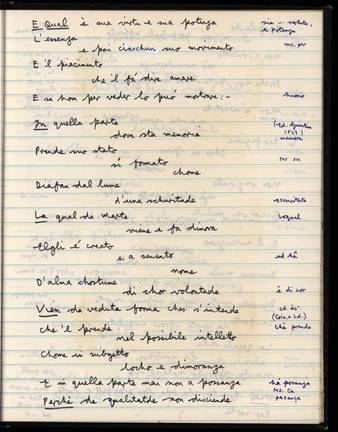 E Qual è sua virtu e sua potenza
sia – vertute, e potenza
L'essenza
e poi ciaschun suo movimento
ms. pr
E 'l piacimento
che 'l fa dire amare
E se hom per veder lo può mostrare :-
huomo
In quella parte
(ed. Giuntina 1527)
dove sta memoria
memora
Prende suo stato
si formato
ms su
chome
Diafan dal lume
d'una schuritade
oscuritate
La qual da marte
Loqual
viene e fa dimora
Elgli è creato
e a sensato
ed hà
nome
D'alma chostume
di chor volontade
è di cor
Vien da veduta forma ches s'intende
ch'ès'
che 'l prende
Chè prende
nel possibile intelletto
Chome in subgetto
locho e dimoranza
E in quella parte mai non a possanza
hà possanza
Ms. Ca pesança
Perchè da qualitatde non disciende